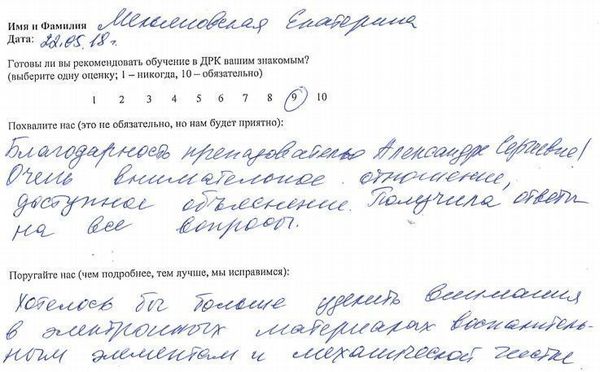 Имя и Фамилия Мехляковская Екатерина
Дата: 22.05.18г.
Готовы ли вы рекомендовать обучение в ДРК вашим знакомым?
(выберите одну оценку; 1 – никогда, 10 – обязательно)
1 2 3 4 5 6 7 8 9 10
Похвалите нас (это не обязательно, но нам будет приятно):
Благодарность преподавателю Александре Сергеевне!
Очень внимательное отношение,
доступное объяснение. Получила ответы
на все вопросы.
Поругайте нас (чем подробнее, тем лучше, мы исправимся):
Хотелось бы больше уделить внимания
в электронных материалах воспалитель-
ным элементам и механической чистке